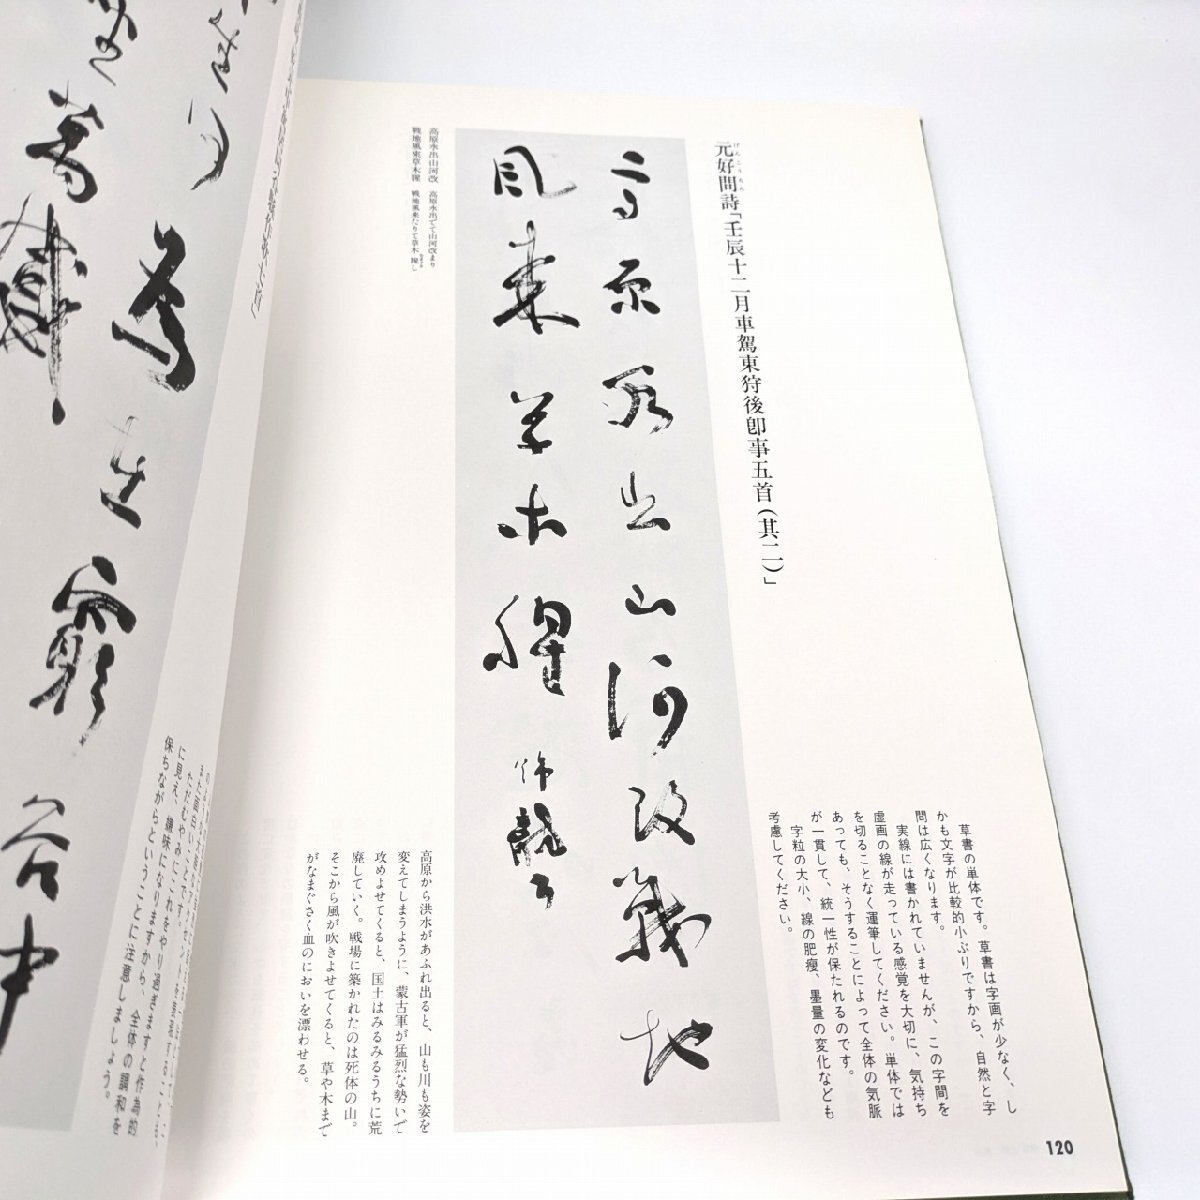 元好問詩「壬辰十二月車駕東狩後即事五首(其二)」
げんこうもん
高原水出山河改戦地
風来草木腥
高原水出山河改 高原水出でて山河改まり
戦地風来草木腥 戦地風来たりて草木腥し
草書の単体です。草書は字画が少なく、し
かも文字が比較的小ぶりですから、自然と字
間は広くなります。
実線には書かれていませんが、この字間を
虚画の線が走っている感覚を大切に、気持ち
を切ることなく運筆してください。単体では
あっても、そうすることによって全体の気脈
が一貫して、統一性が保たれるのです。
字粒の大小、線の肥痩、墨量の変化なども
考慮してください。
高原から洪水があふれ出ると、山も川も姿を
変えてしまうように、蒙古軍が猛烈な勢いで
攻めよせてくると、国土はみるみるうちに荒
廃していく。戦場に築かれたのは死体の山。
そこから風が吹きよせてくると、草や木まで
がなまぐさく血のにおいを漂わせる。
120
窮谷中
ただむやみにこれをやり過ぎますと作為的
に見え、嫌味になりますから、全体の調和を
保ちながらということに注意しましょう。